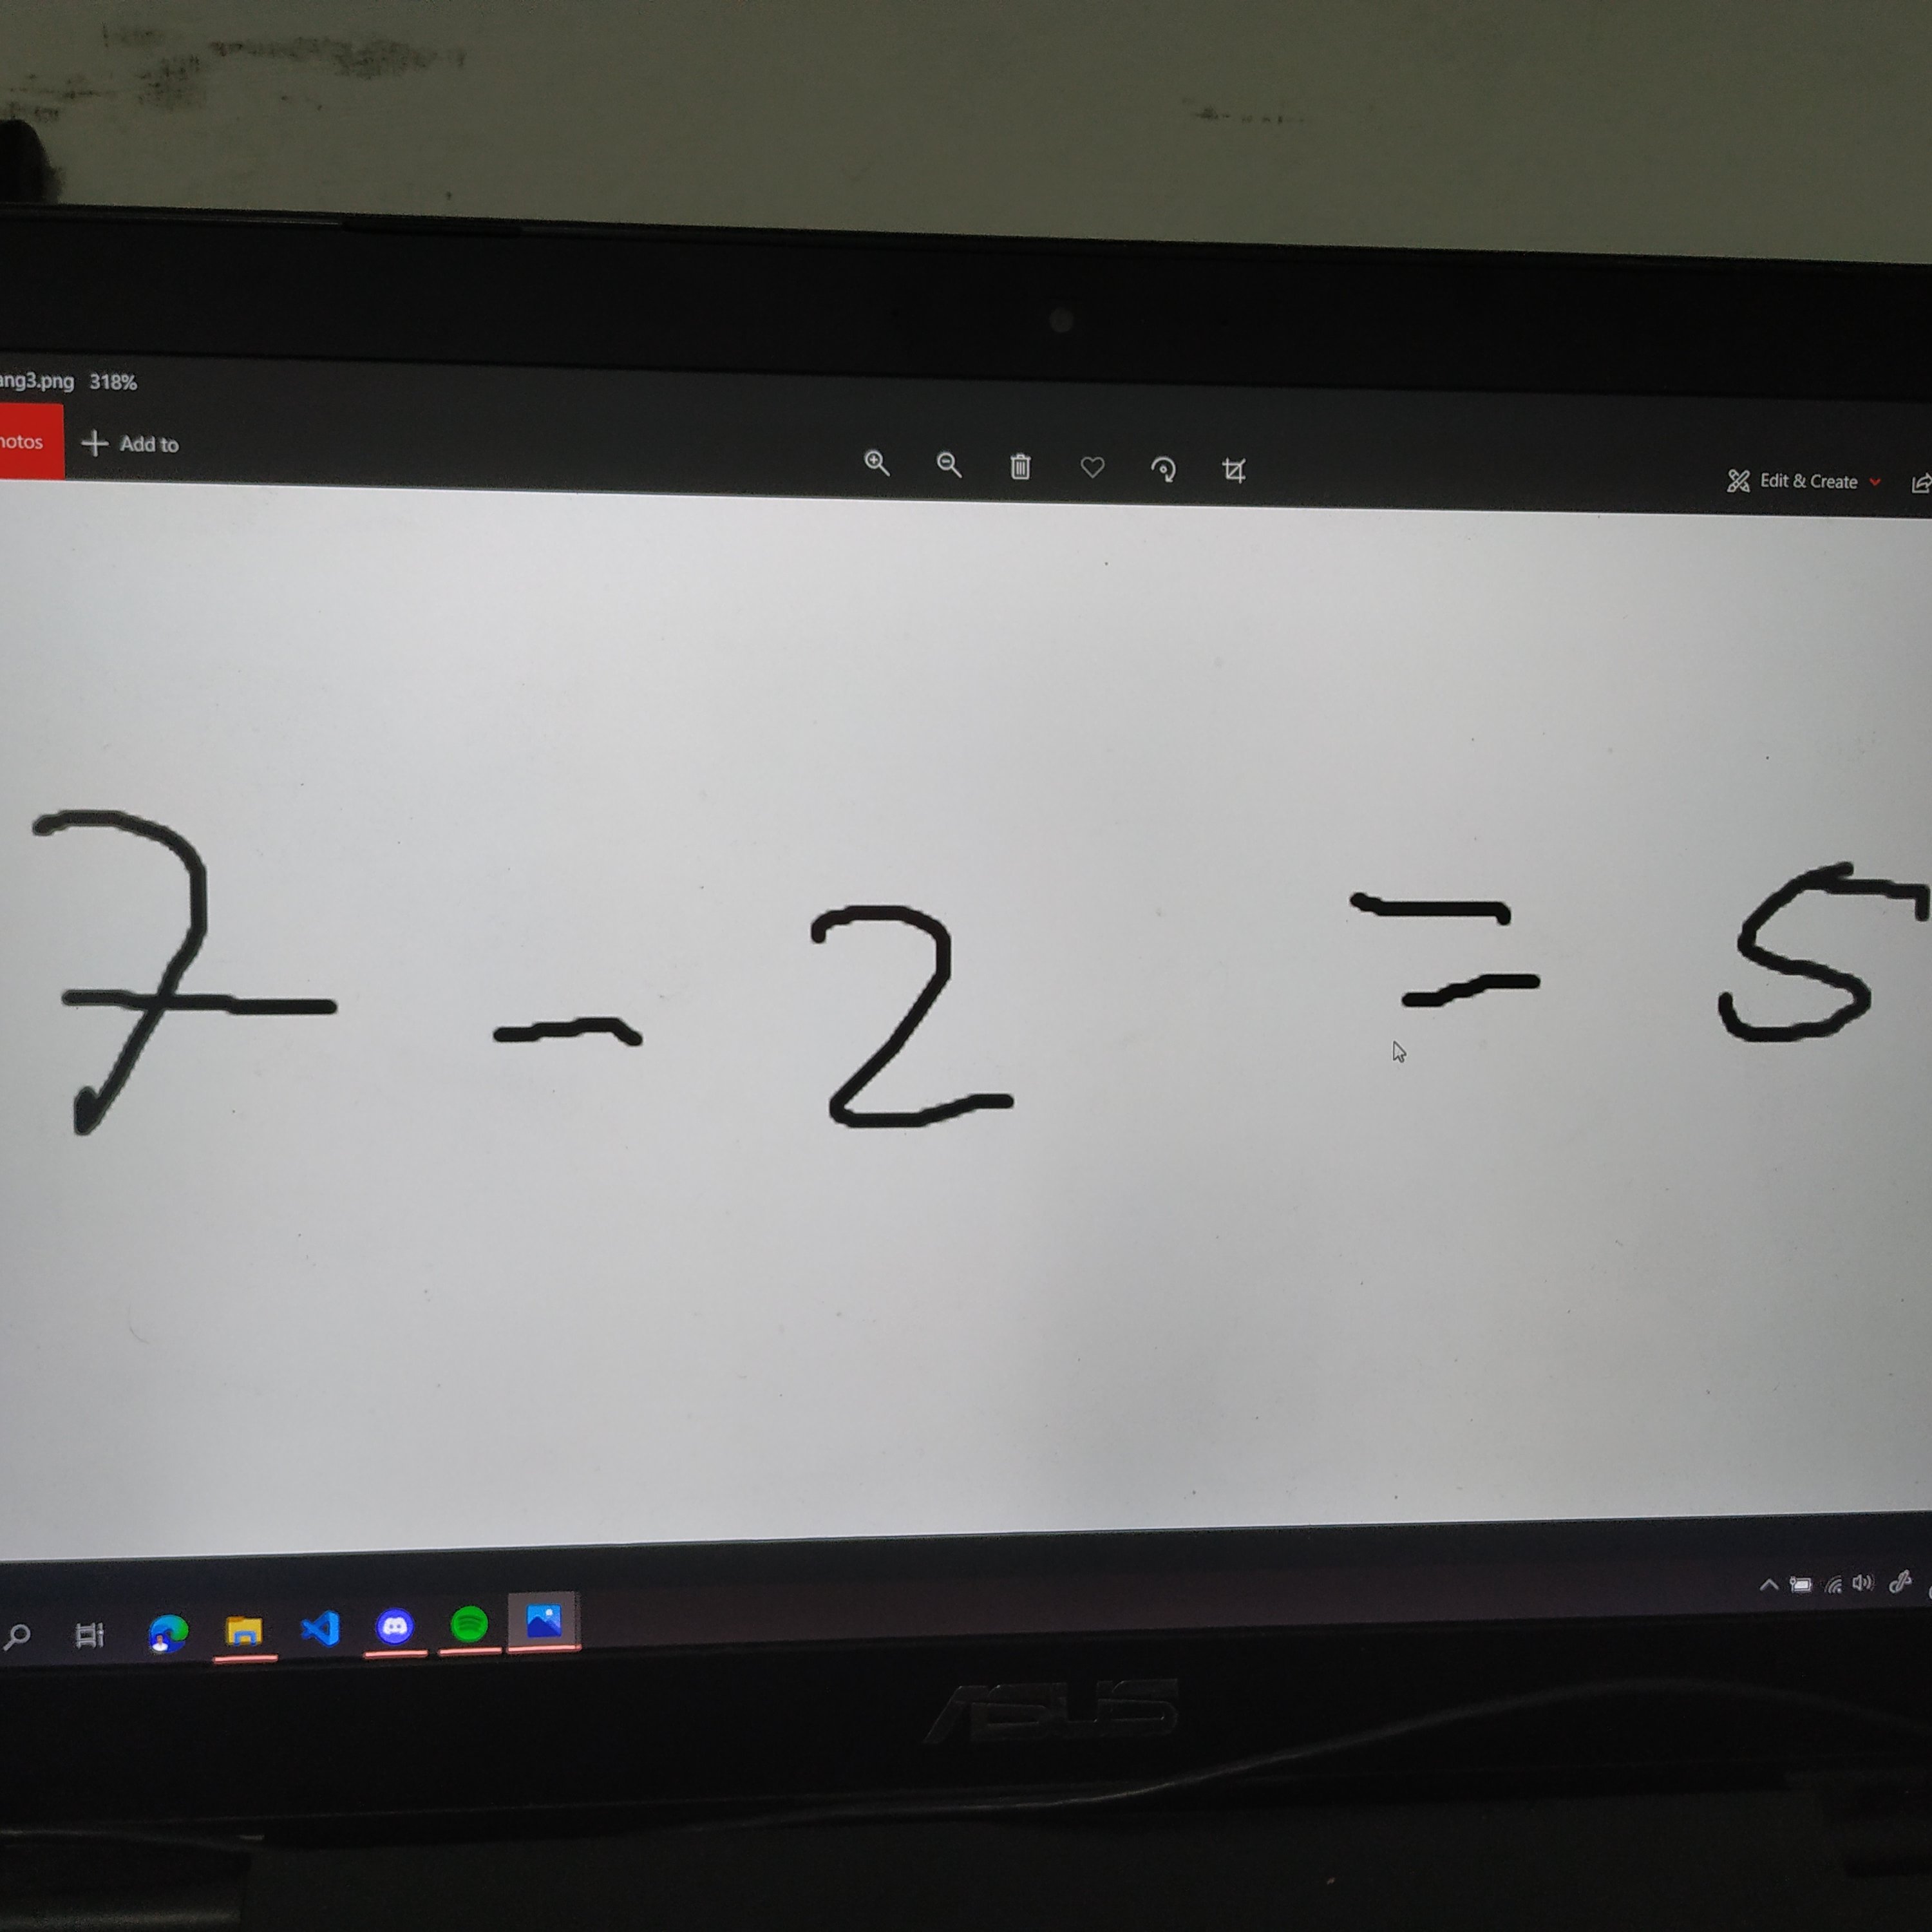 ang3.png 318%
hotos Add to Edit & Create
7 - 2 = 5
ASUS